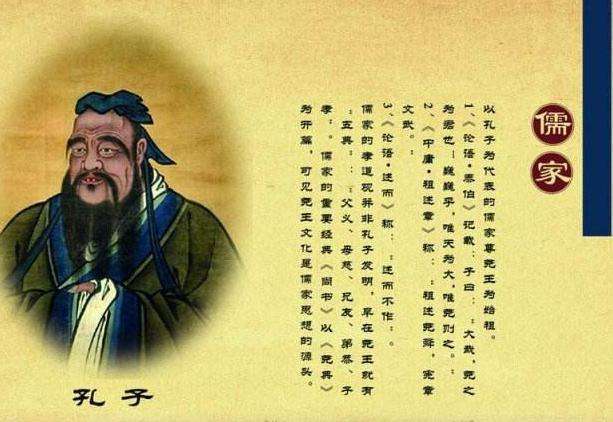 儒家
以孔子为代表的儒家尊尧王为始祖。
1、《论语·泰伯》记载:子曰:“大哉,尧之
为君也!巍巍乎,唯天为大,唯尧则之。”
2、《中庸·祖述章》称:“祖述尧舜,宪章
文武。”
3、《论语·述而》称:“述而不作”。
儒家的孝道观并非孔子发明,早在尧王就有
“五典”:“父义、母慈、兄友、弟恭、子
孝”。儒家的重要经典《尚书》以《尧典》
为开篇,可见尧王文化是儒家思想的源头。
孔子